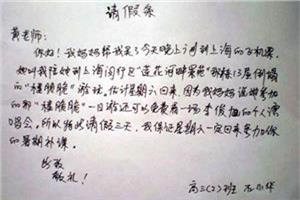 请假条
黄老师:
你好!我妈妈帮我买了今天晚上到上海的飞机票,
她叫我陪她到上海闵行区“莲花河畔景苑”那栋13层倒塌
的“楼脆脆”游玩,估计星期六回来。因为我妈妈说她参加
的那“楼脆脆”一日游还可以免费看一场李俊旭的个人演
唱会,所以特此请假三天。我保证星期六一定回来参加你
的暑期补课。
此致
敬礼!
高三(2)班 小华